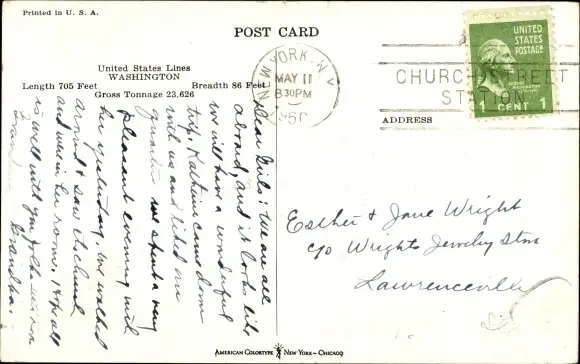 Printed in U. S. A.
POST CARD
United States Lines
WASHINGTON
Length 705 Feet Breadth 86 Feet
Gross Tonnage 23,626
NEW YORK, N.Y.
MAY 11
8 30 PM
CHURCH STREET
STATION
UNITED
STATES
POSTAGE
1 CENT 1
ADDRESS
Dear Girls: We are all
aboard, and it looks like
we will have a wonderful
trip. Katherine came down
with us and liked our
quarters. We spent a very
pleasant evening with
her yesterday. We walked
around & saw the church
and where he rooms. Hope all
is well with you folks
Grandma.
Esther & Jane Wright
c/o Wrights Jewelry Store
Lawrenceville
Ill
AMERICAN COLORTYPE NEW YORK - CHICAGO